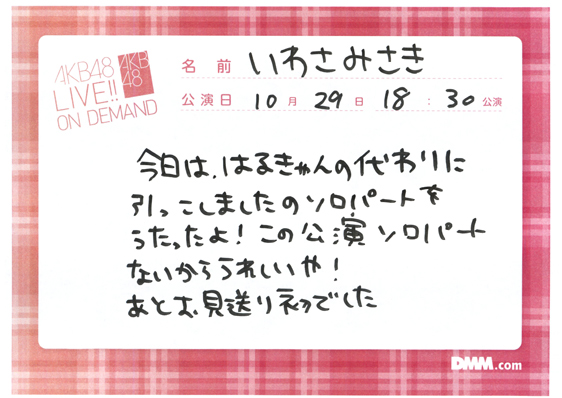 AKB48
LIVE!!
ON DEMAND
AKB
48
名前 いわさみさき
公演日 10月29日 18:30公演
今日は、はるきゃんの代わりに
引っこしましたのソロパートを
うたったよ!この公演ソロパート
ないからうれしいや!
あとお見送り初でした
DMM.com